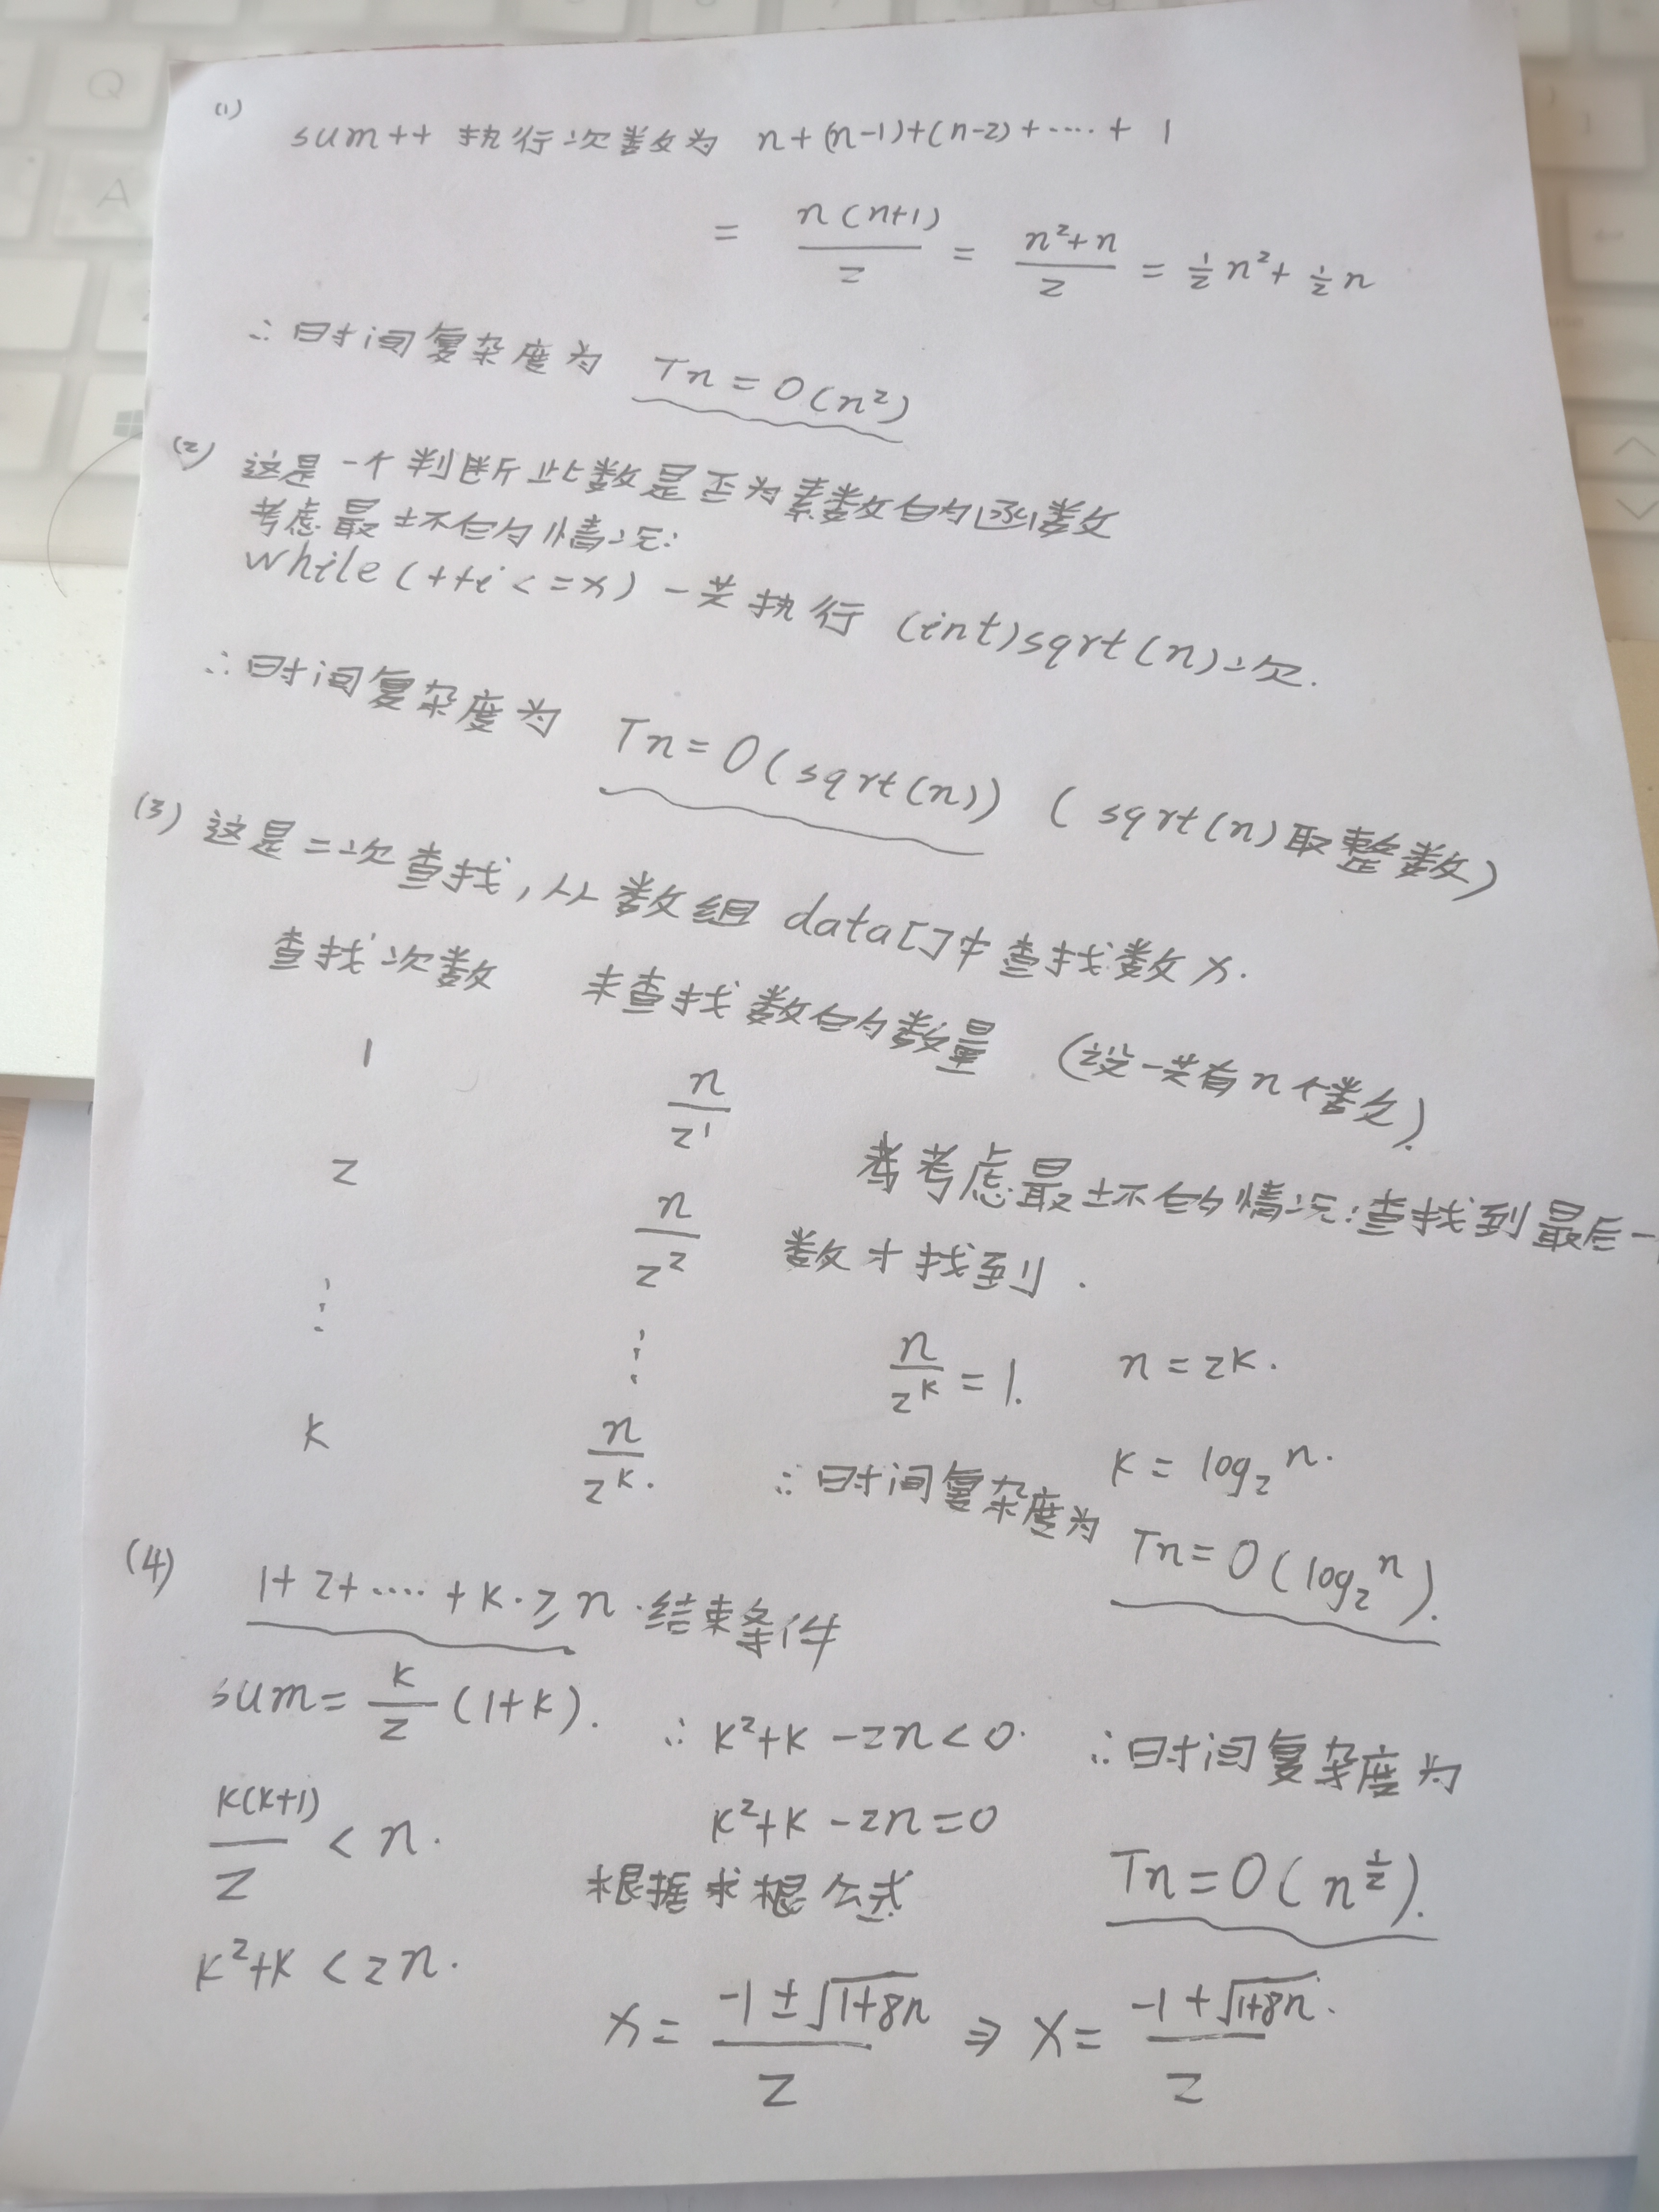 (1)
sum++ 执行次数为 n+(n-1)+(n-2)+····+ 1
= n(n+1)/2 = (n²+n)/2 = ½n²+½n
∴时间复杂度为 Tn=O(n²)
(2) 这是一个判断此数是否为素数的函数
考虑最坏的情况:
while(++i<=x) 一共执行 (int)sqrt(n)次.
∴时间复杂度为 Tn=O(sqrt(n)) (sqrt(n)取整数)
(3) 这是二次查找,从数组 data[]中查找数x.
查找次数 未查找数的数量 (设一共有n个数)
1 n/2¹
2 n/2²
⋮ ⋮
k n/2ᵏ.
考虑最坏的情况:查找到最后一
数才找到.
n/2ᵏ=1. n=2ᵏ.
k=log₂n.
∴时间复杂度为 Tn=O(log₂n).
(4) 1+2+····+k·≥n·结束条件
sum=k/2(1+k).
k(k+1)/2<n.
k²+k<2n.
∴k²+k-2n<0.
k²+k-2n=0
根据求根公式
x=(-1±√(1+8n))/2 ⇒ x=(-1+√(1+8n))/2
∴时间复杂度为
Tn=O(n^½).